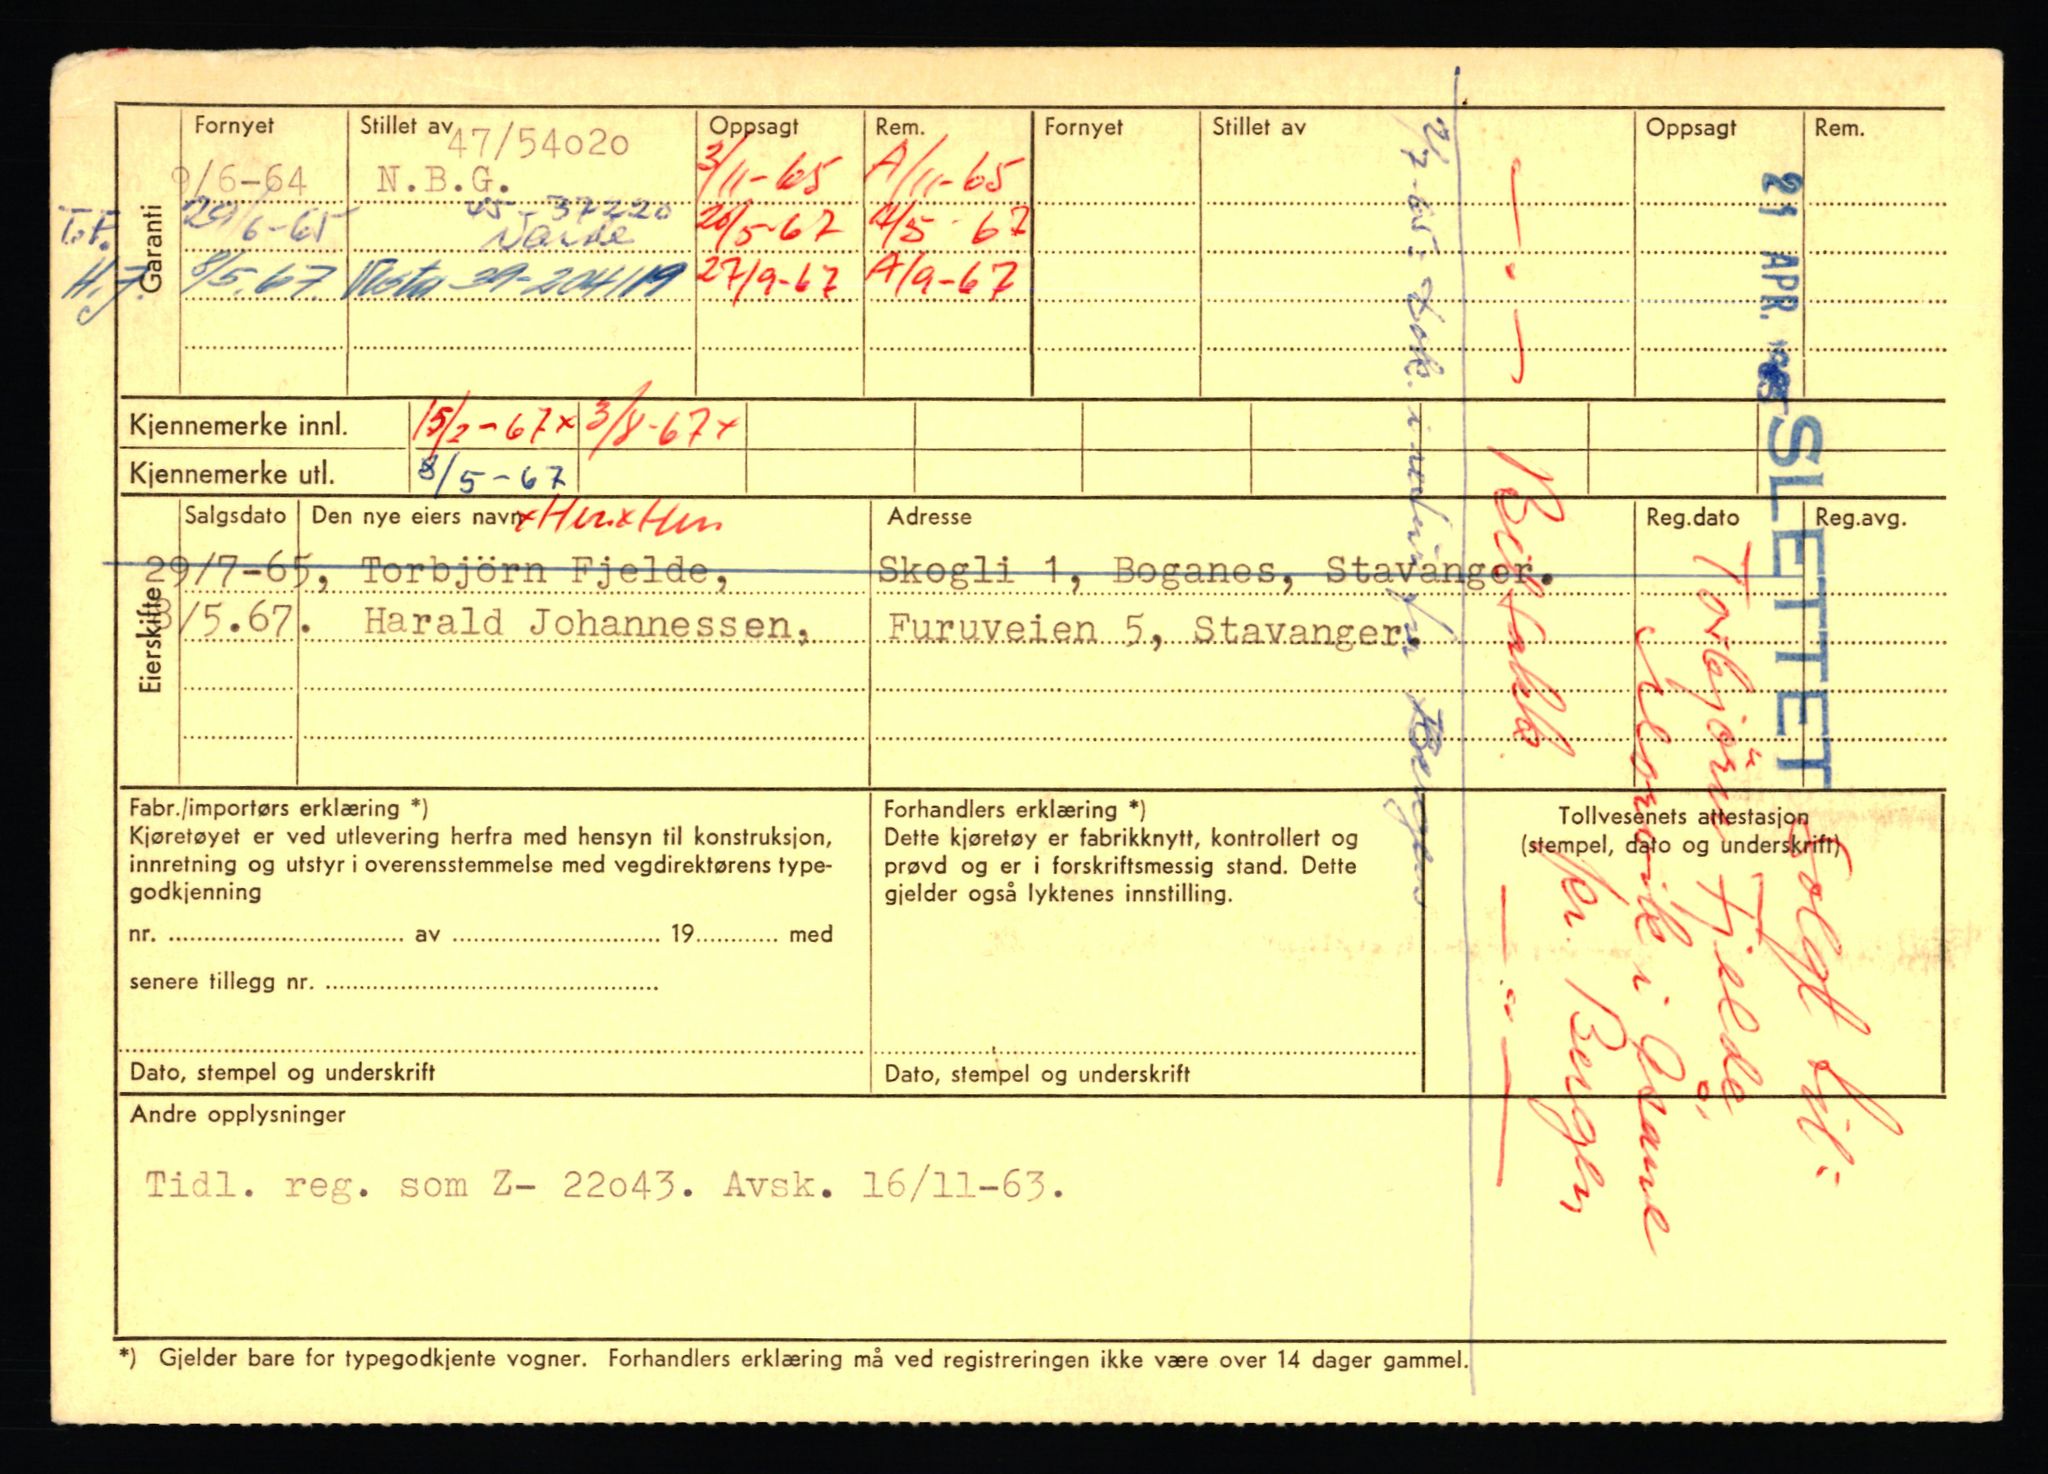 Garanti
Fornyet Stillet av Oppsagt Rem. Fornyet Stillet av Oppsagt Rem.
47/54020
9/6-64 N.B.G. 3/11-65 A/11-65
T.F. 29/6-65 45-37220 Norde 20/5-67 A/5-67
H.J. 8/5.67. Vesta 39-204119 27/9-67 A/9-67
Kjennemerke innl. 15/2-67x 3/8-67x
Kjennemerke utl. 8/5-67
Eierskifte
Salgsdato Den nye eiers navn xHenxHen Adresse Reg.dato Reg.avg.
29/7-65, Torbjörn Fjelde, Skogli 1, Boganes, Stavanger.
8/5.67. Harald Johannessen, Furuveien 5, Stavanger.
Fabr./importørs erklæring *)
Kjøretøyet er ved utlevering herfra med hensyn til konstruksjon,
innretning og utstyr i overensstemmelse med vegdirektørens type-
godkjenning
nr. av 19 med
senere tillegg nr.
Dato, stempel og underskrift
Forhandlers erklæring *)
Dette kjøretøy er fabrikknytt, kontrollert og
prøvd og er i forskriftsmessig stand. Dette
gjelder også lyktenes innstilling.
Dato, stempel og underskrift
Tollvesenets attestasjon
(stempel, dato og underskrift)
Andre opplysninger
Tidl. reg. som Z- 22043. Avsk. 16/11-63.
*) Gjelder bare for typegodkjente vogner. Forhandlers erklæring må ved registreringen ikke være over 14 dager gammel.
21 APR. SLETTET
Solgt til:
Torbjörn Fjelde,
i
Bergen
Bergen